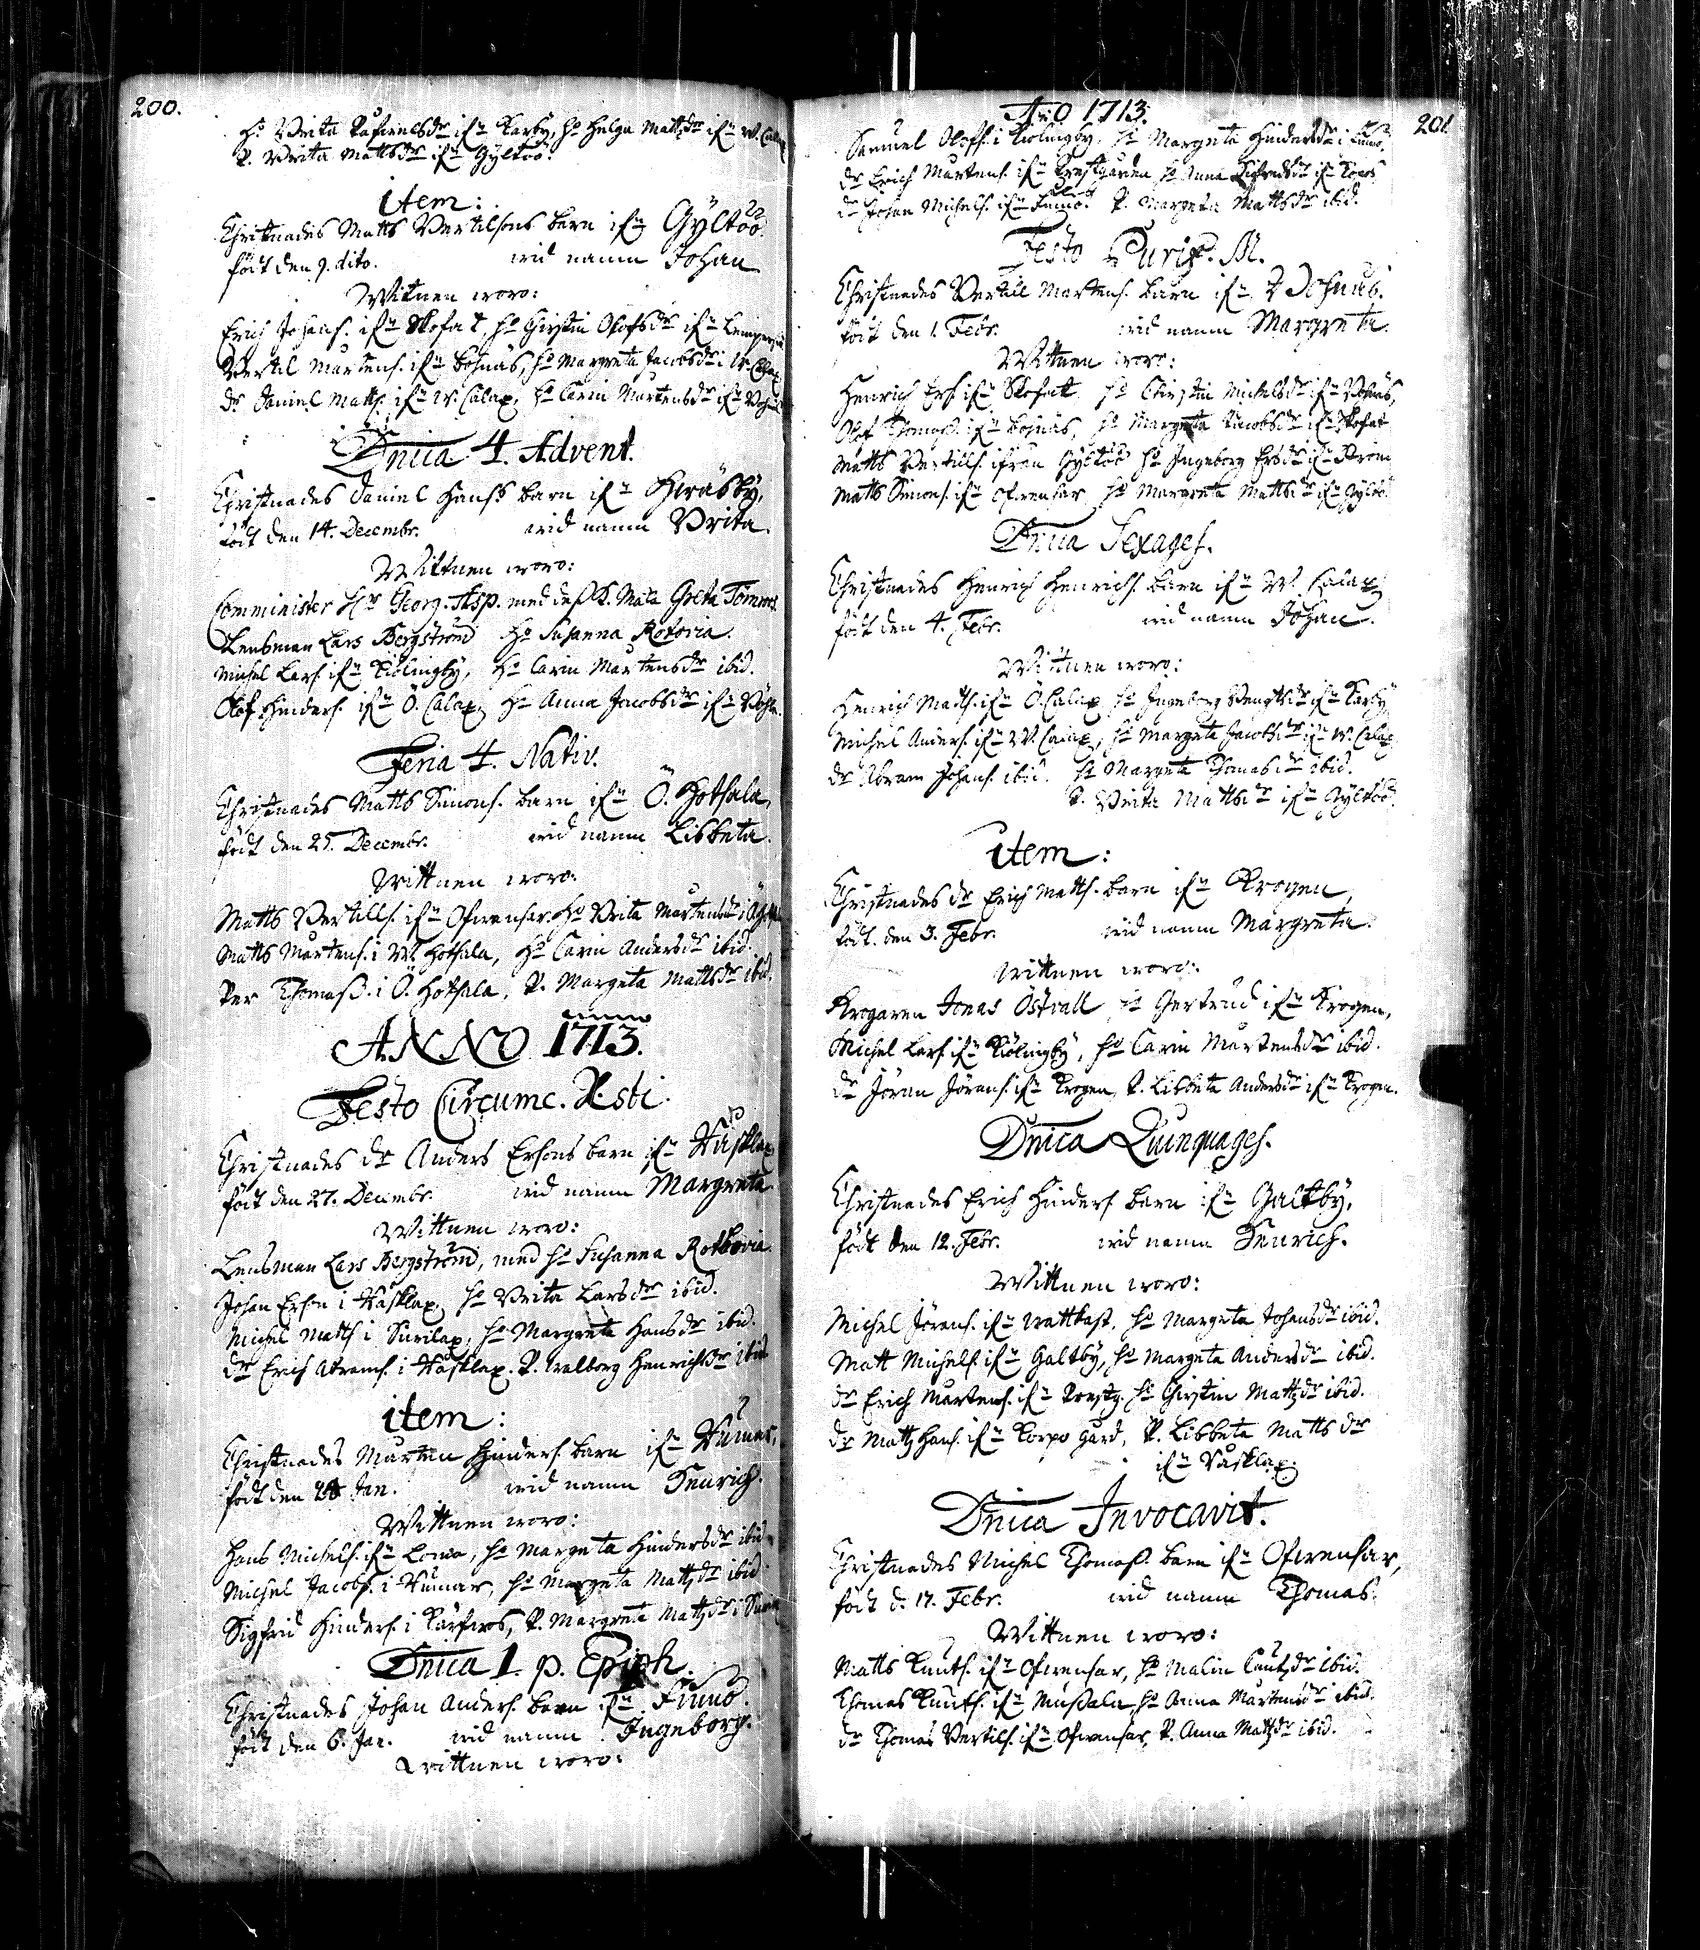 200.
H: Brita Påfwelsdr ifrn Karby, Ho Helga Mattzdr ifrn W. Calax
P. Brita Mattsdr ifrn Gyltöö.
item:
Christnades Matts Bertilsons barn ifrn Gyltöö
födt den 9. dito. wid namn Johan
Witnen woro:
Erich Johans. ifrn Skofat, Ho Chirstin Olofsdr ifrn
Bertil Mårtens. ifrn Bohnäs, Ho Margreta Jacobsdr i W. Calax
dr Daniel Matts. ifrn W. Calax, Ho Carin Mårtensdr ifrn
Dnica 4. Advent.
Christnades Daniel Hanss barn ifrn
födt den 14. Decembr. wid namn Brita.
Wittnen woro:
Comminister Hr Georg. Asp. med dess K. Maka Greta
Lensman Lars Bergström Ho Susanna Rotovia.
Michel Lars. ifrn Kiölingby, Ho Carin Mårtensdr ibid.
Olof Hinders. ifrn Ö. Calax, Ho Anna Jacobsdr ifrn
Feria 4. Nativ.
Christnades Matts Simons. barn ifrn Ö. Hothala,
födt den 25. Decembr. wid namn Lisbeta.
Wittnen woro:
Matts Bertills. ifrn Ofwensar. Ho Brita Mårtensdr i
Matts Mårtens. i W. Hothala, Ho Carin Andersdr ibid.
Per Thomass. i Ö. Hothala, P. Margeta Mattsdr ibid.
ANNO 1713.
Festo Circumc. Xsti.
Christnades dr Anders Ersons barn ifrn Wåsklax
födt den 27. Decembr. wid namn Margreta
Wittnen woro:
Lensman Lars Bergström, med Ho Susanna Rothovia
Johan Erson i Wåsklax, Ho Brita Larsdr ibid.
Michel Matts. i Surilax, Ho Margreta Hansdr ibid.
dr Erich Abrams. i Wåsklax. P. Walborg Henrichsdr ibid
item:
Christnades Mårten Hinders. barn ifrn
födt den Jan. wid namn Henrich.
Wittnen woro:
Hans Michels. ifrn Lowa, Ho Margeta Hindersdr ibid
Michel Jacobs. i Ho Margeta Mattzdr ibid
Sigfrid Hinders. i P. Margreta Mattzdr i
Dnica 1. p. Epiph.
Christnades Johan Anders. barn ifrn Finnö.
födt den 6. Jan. wid namn Ingeborg.
Wittnen woro:
Ao 1713. 201.
Samuel Olofs. i Kiölingby, Ho Margeta Hindersdr i Finnö.
dr Erich Mårtens. ifrn Prestgården Ho Anna Sigfredsdr ifrn
dr Johan Michels. ifrn Finnö. P. Margeta Mattsdr ibid.
Festo Purif. M.
Christnades Bertill Mårtens. barn ifrn Bohnäs.
födt den 1. Febr. wid namn Margreta.
Wittnen woro:
Henrich Ers. ifrn Skofat Ho Chirstin Michelsdr ifrn Bohnäs,
Olof Thomass. ifrn Bohnäs, Ho Margeta Jacobsdr ifrn Skofat
Matts Bertills. ifrån Gyltöö Ho Ingeborg Ersdr ifrn
Matts Simons. ifrn Ofwensar Ho Margreta Mattsdr ifrn Gyltöö.
Dnica Sexages.
Christnades Henrich Henrichs. barn ifrn W. Calax
födt den 4. Febr. wid namn Johan.
Wittnen woro:
Henrich Matts. ifrn Ö. Calax Ho Ingeborg Bengtsdr ifrn Karby
Michel Anders. ifrn W. Calax, Ho Margeta Jacobsdr ifrn W. Calax
dr Abram Johans. ibid. Ho Margeta Thomasdr ibid.
P. Brita Mattsdr ifrn Gyltöö.
item:
Christnades dr Erich Matts. barn ifrn Krogen,
födt. den 3. Febr. wid namn Margreta.
Wittnen woro:
Krogaren Jonas Östvall, Ho Gertrud ifrn Krogen,
Michel Lars. ifrn Kiölingby, Ho Carin Mårtensdr ibid.
dr Jöran Jörans. ifrn Krogen, P. Lisbeta Andersdr ifrn Krogen.
Dnica Quinquages.
Christnades Erich Hinders. barn ifrn Galtby,
födt den 12. Febr. wid namn Henrich.
Wittnen woro:
Michel Jörans. ifrn Wattkast. Ho Margeta Johansdr ibid.
Matt Michels. ifrn Galtby, Ho Margeta Andersdr ibid.
dr Erich Mårtens. ifrn Prestg. Ho Chirstin Mattzdr ibid.
dr Mattz Hans. ifrn Korpo Gård, P. Lisbeta Matts dr
ifrn Wåsklax.
Dnica Invocavit.
Christnades Michel Thomass. barn ifrn Ofwensar,
födt d. 17. Febr. wid namn Thomas.
Wittnen woro:
Matts Knuts. ifrn Ofwensar, Ho Malin Knutzdr ibid.
Thomas Knuts. ifrn Mussala, Ho Anna Mårtensdr ibid.
dr Thomas Bertils. ifrn Ofwensar, P. Anna Mattzdr ibid.